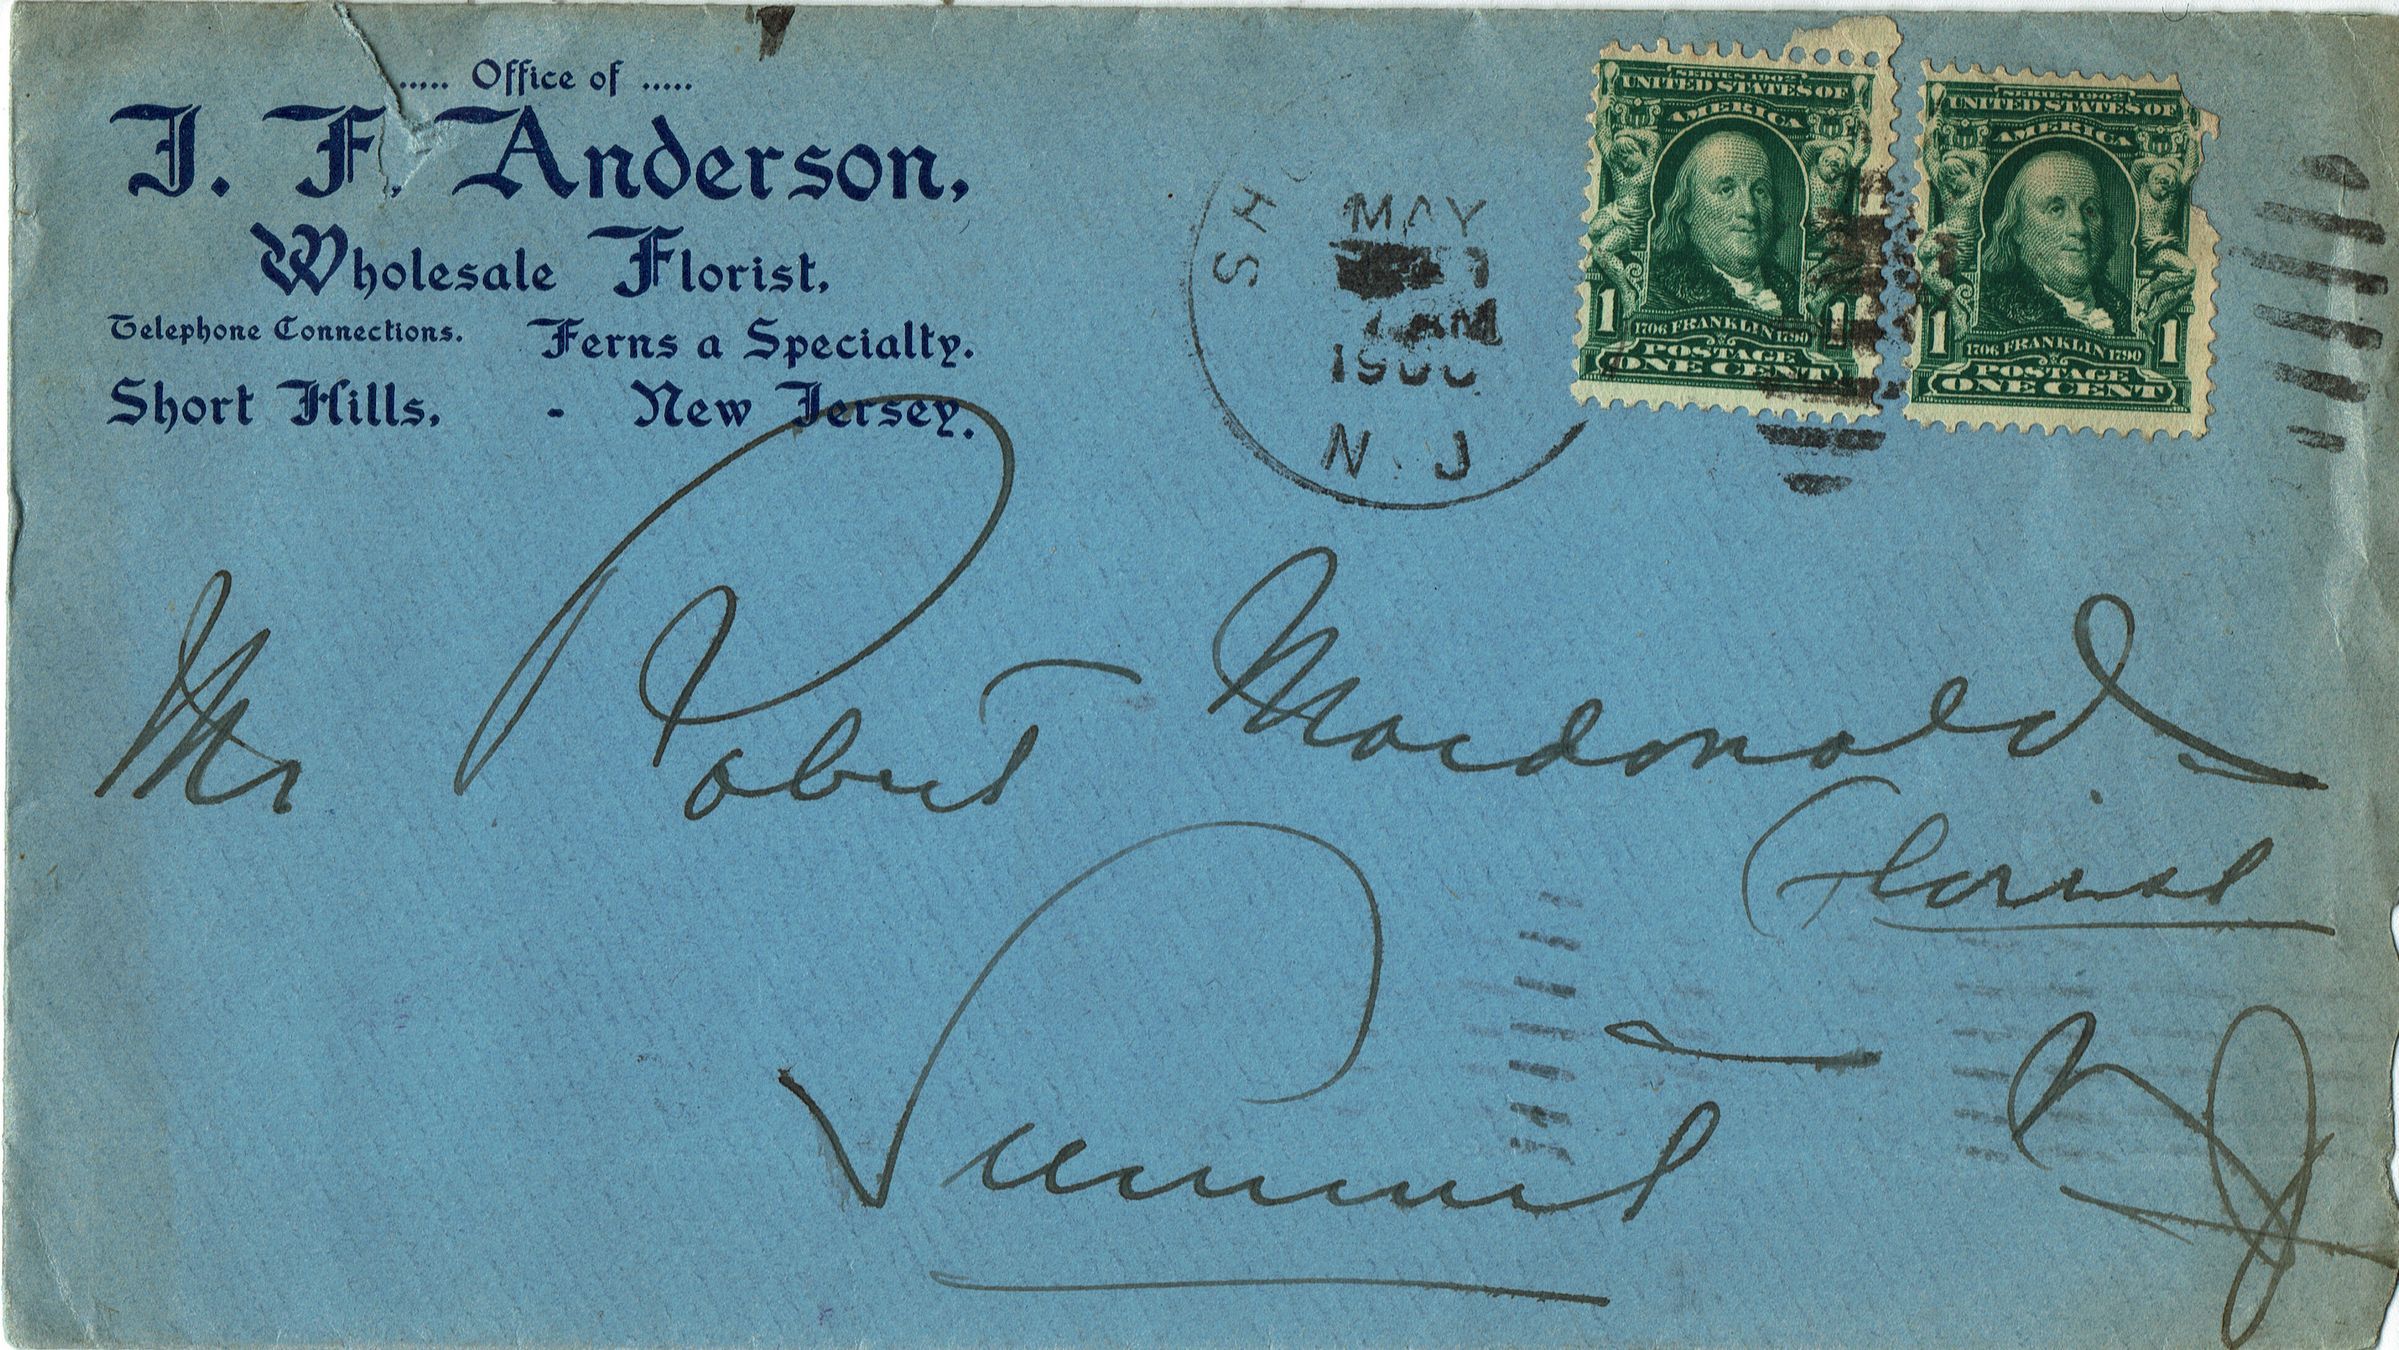 ..... Office of .....
J. F. Anderson,
Wholesale Florist,
Telephone Connections. Ferns a Specialty.
Short Hills, - New Jersey.
SH
MAY
N. J
SERIES 1902
UNITED STATES OF
AMERICA
1706 FRANKLIN 1790
1 1
POSTAGE
ONE CENT
SERIES 1902
UNITED STATES OF
AMERICA
1706 FRANKLIN 1790
1 1
POSTAGE
ONE CENT
Mr Robert Macdonald
Florist
Summit - NJ